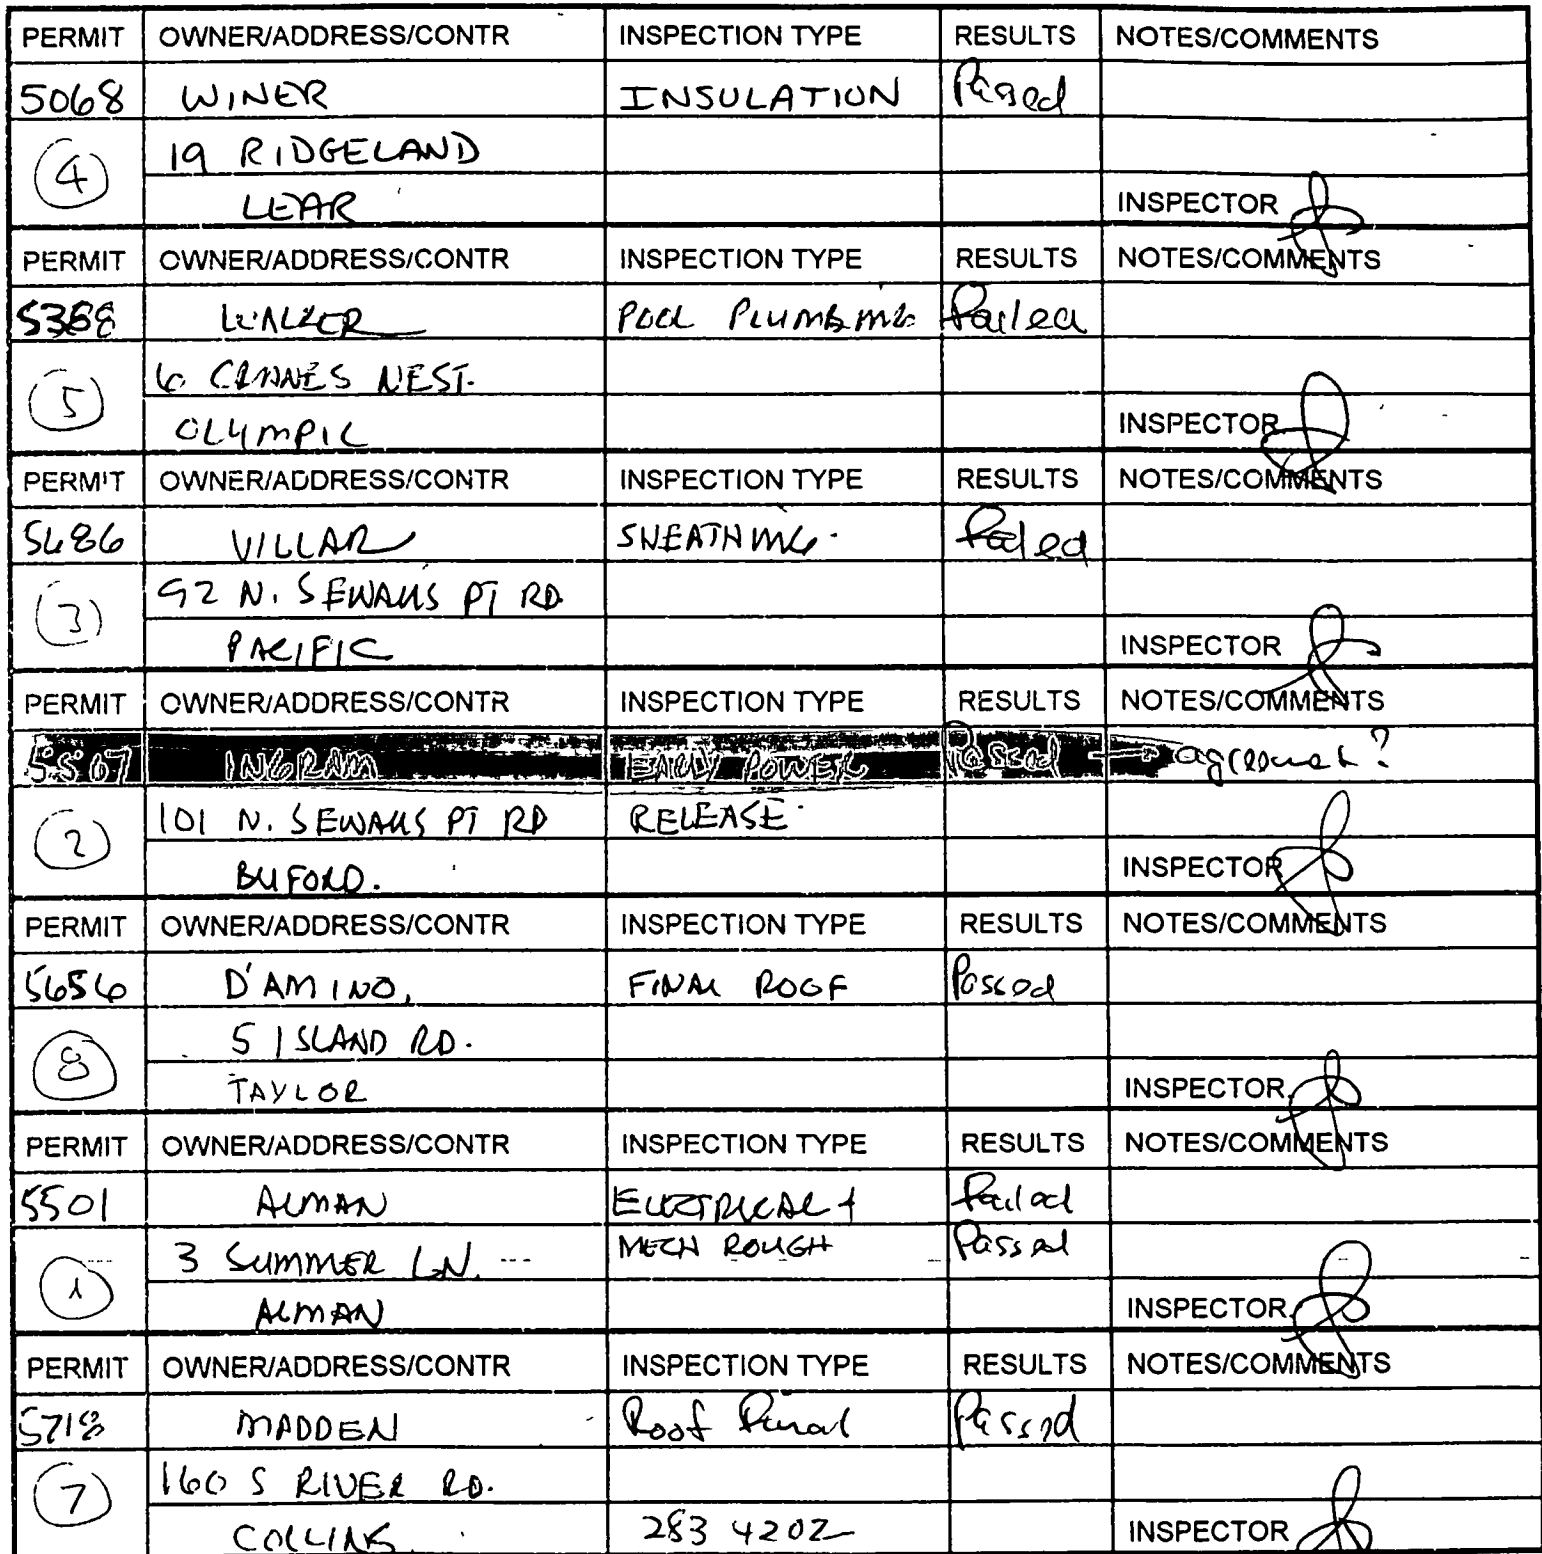 PERMIT OWNER/ADDRESS/CONTR INSPECTION TYPE RESULTS NOTES/COMMENTS
5068 WINER INSULATION Passed
4 19 RIDGELAND
LEAR INSPECTOR
PERMIT OWNER/ADDRESS/CONTR INSPECTION TYPE RESULTS NOTES/COMMENTS
WALKER POOL PLUMBING Failed
5 6 NEST.
OLYMPIC INSPECTOR
PERMIT OWNER/ADDRESS/CONTR INSPECTION TYPE RESULTS NOTES/COMMENTS
5686 VILLAR SHEATHING. Failed
3 92 N. SEWALLS PT RD
PACIFIC INSPECTOR
PERMIT OWNER/ADDRESS/CONTR INSPECTION TYPE RESULTS NOTES/COMMENTS
5507 INGRAM EARLY POWER Passed → agreement?
2 101 N. SEWALLS PT RD RELEASE
BUFORD. INSPECTOR
PERMIT OWNER/ADDRESS/CONTR INSPECTION TYPE RESULTS NOTES/COMMENTS
5656 D'AMINO, FINAL ROOF Passed
8 5 ISLAND RD.
TAYLOR INSPECTOR
PERMIT OWNER/ADDRESS/CONTR INSPECTION TYPE RESULTS NOTES/COMMENTS
5501 ALMAN ELECTRICAL + Failed
1 3 SUMMER LN. MECH ROUGH Passed
ALMAN INSPECTOR
PERMIT OWNER/ADDRESS/CONTR INSPECTION TYPE RESULTS NOTES/COMMENTS
5718 MADDEN Roof Final Passed
7 160 S RIVER RD.
COLLINS 283 4202 INSPECTOR